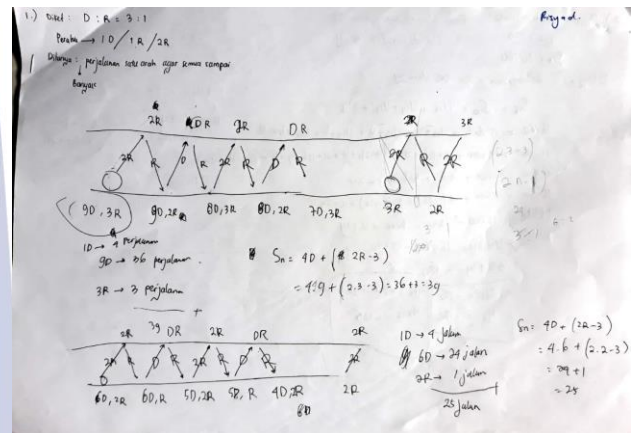 Rizyad.
1.) Diket : D : R = 3 : 1
Perahu → 1D / 1R / 2R
Ditanya : perjalanan satu arah agar semua sampai
Banyak
2R DR 2R DR 2R 3R
2R R D R 2R R D R 2R R 2R
9D, 3R 9D, 2R 8D, 3R 8D, 2R 7D, 3R 3R 2R
(2.3-3)
(2n-1)
1D → 4 perjalanan
9D → 36 perjalanan.
3R → 3 perjalanan
+
39
Sn = 4D + (2R-3)
= 4.9 + (2.3-3) = 36+3 = 39
2R DR 2R DR 2R
2R R D R 2R R D R 2R
6D, 2R 6D, R 5D, 2R 5D, R 4D, 2R 2R
1D → 4 jalan
6D → 24 jalan
2R → 1 jalan
+
25 jalan
Sn = 4D + (2R-3)
= 4.6 + (2.2-3)
= 24 + 1
= 25